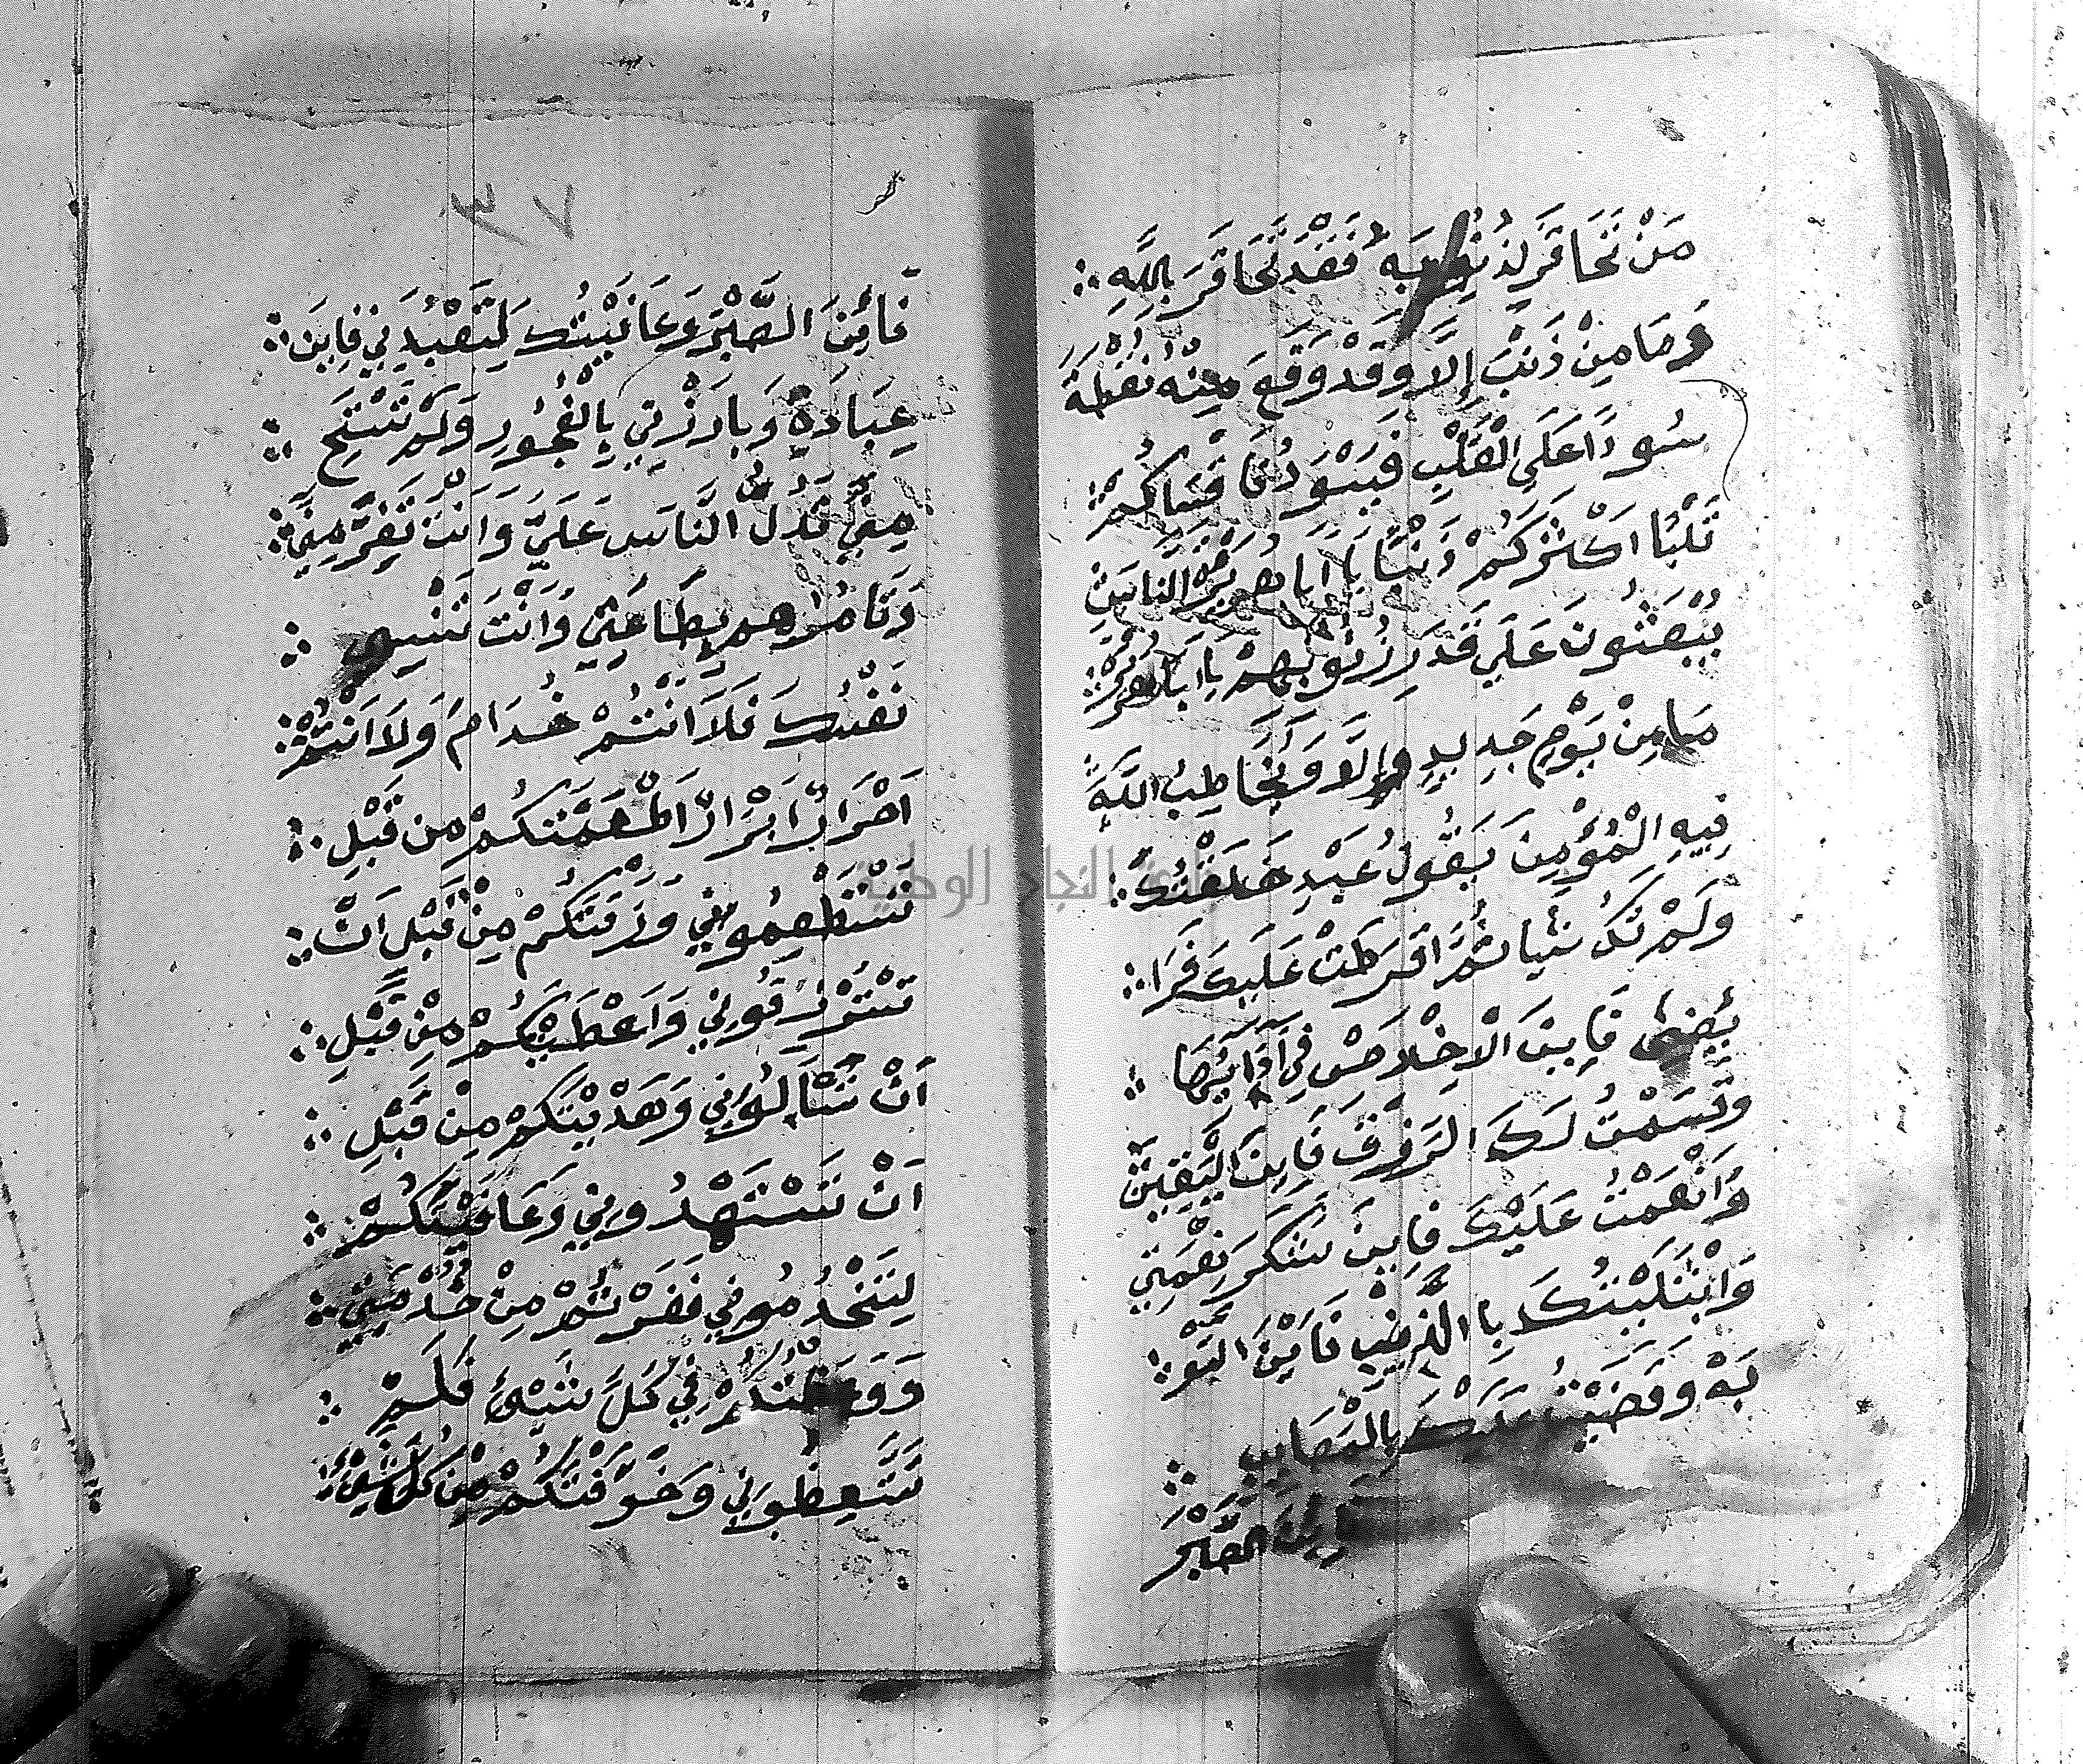 مَنْ تَحَاقَرَ لِذُنُوبِهِ فَقَدْ تَحَاقَرَ بِاللَّهِ
وَمَا مِنْ ذَنْبٍ إِلَّا وَقَدْ وَقَعَ مِنْهُ نُقْطَةً
سُودًا عَلَى الْقَلْبِ فَيَسْوَدُّ فَأَقْسَاكُمْ
قَلْبًا اَكْثَرَكُمْ ذَنْبًا يَا ابَا هُرَيْرَةْ النَّاسِ
يُبْعَثُونَ عَلَى قَدَرِ ذُنُوبِهِمْ يَا ابَا هُرَيْرَةْ
مَا مِنْ يَوْمٍ جَدِيدٍ وَإِلَّا وَيُخَاطِبُ اللَّهُ
فِيهِ الْمُؤْمِنَ يَقُولُ عَبْدِ خَلَقْتُكَ
وَلَمْ تَكُ شَيْا ثُمَّ افْرَطْتُ عَلَيْكَ فَرَا
يُضِي فَايِنَ الْاِخْلَاصْ فِي اَدَائِهَا
وَقَسَمْتُ لَكَ الرِّزِقَ فَايِنَ الْيَقِينْ
وَانْعَمْتُ عَلَيْكَ فَايِنَ شُكْرَ نِعْمَتِي
وَابْتَلَيْتُكَ بِا الذَّنْبِ فَايْنَ التَّوْ
بَهْ وَقَضَيْتُ عَلَيْكَ بِالْمَصَايِبِ
فَايِنَ الصَّبْرْ
٣٧
فَائِنَ الصَّبْرَ وَعَافَيْتُكَ لِتَعْبُدَنِي فَايِنَ
عِبَادَةْ وَبَارَزْتَنِي بِالْفُجُورِ وَلَمْ تَسْتَحِ
مِنِّي تَدُلُّ النَّاسِ عَلَيَّ وَاَنْتَ تَفِرَّ مِنِّي
وَتَامُرُهُمْ بِطَاعَتِي وَاَنْتَ تَنْسِي
نَفْسُكَ فَلَا اَنْتُمْ خُدَامَ وَلَا اَنْتُمْ
اَحْرَارًا اَبْرَارًا اَطْعَمْتُكُمْ مِنْ قَبْلِ
تَسْتَطْعِمُونِي وَرَزَقْتَكُمْ مِنْ قَبْلِ اَنْ
تَسْتَرْزِقُونِي وَاَعْطَيْتُكُمْ مِنْ قَبْلِ
اَنْ تَسْأَلُونِي وَهَدْيْتَكُمْ مِنْ قَبْلِ
اَنْ تَسْتَهْدُونِي وَعَافَيْتُكُمْ
لِتَخْدُمُونِي فَفَرْتُمْ مِنْ خُدْمَتِي
وَوَعَظْتُكُمْ فِي كُلِّ شَيْئٍ فَلَمْ
تَتَّعِظُونِي وَخَوَّفْتُكُمْ مِنْ كُلِّ شَيْئٍ